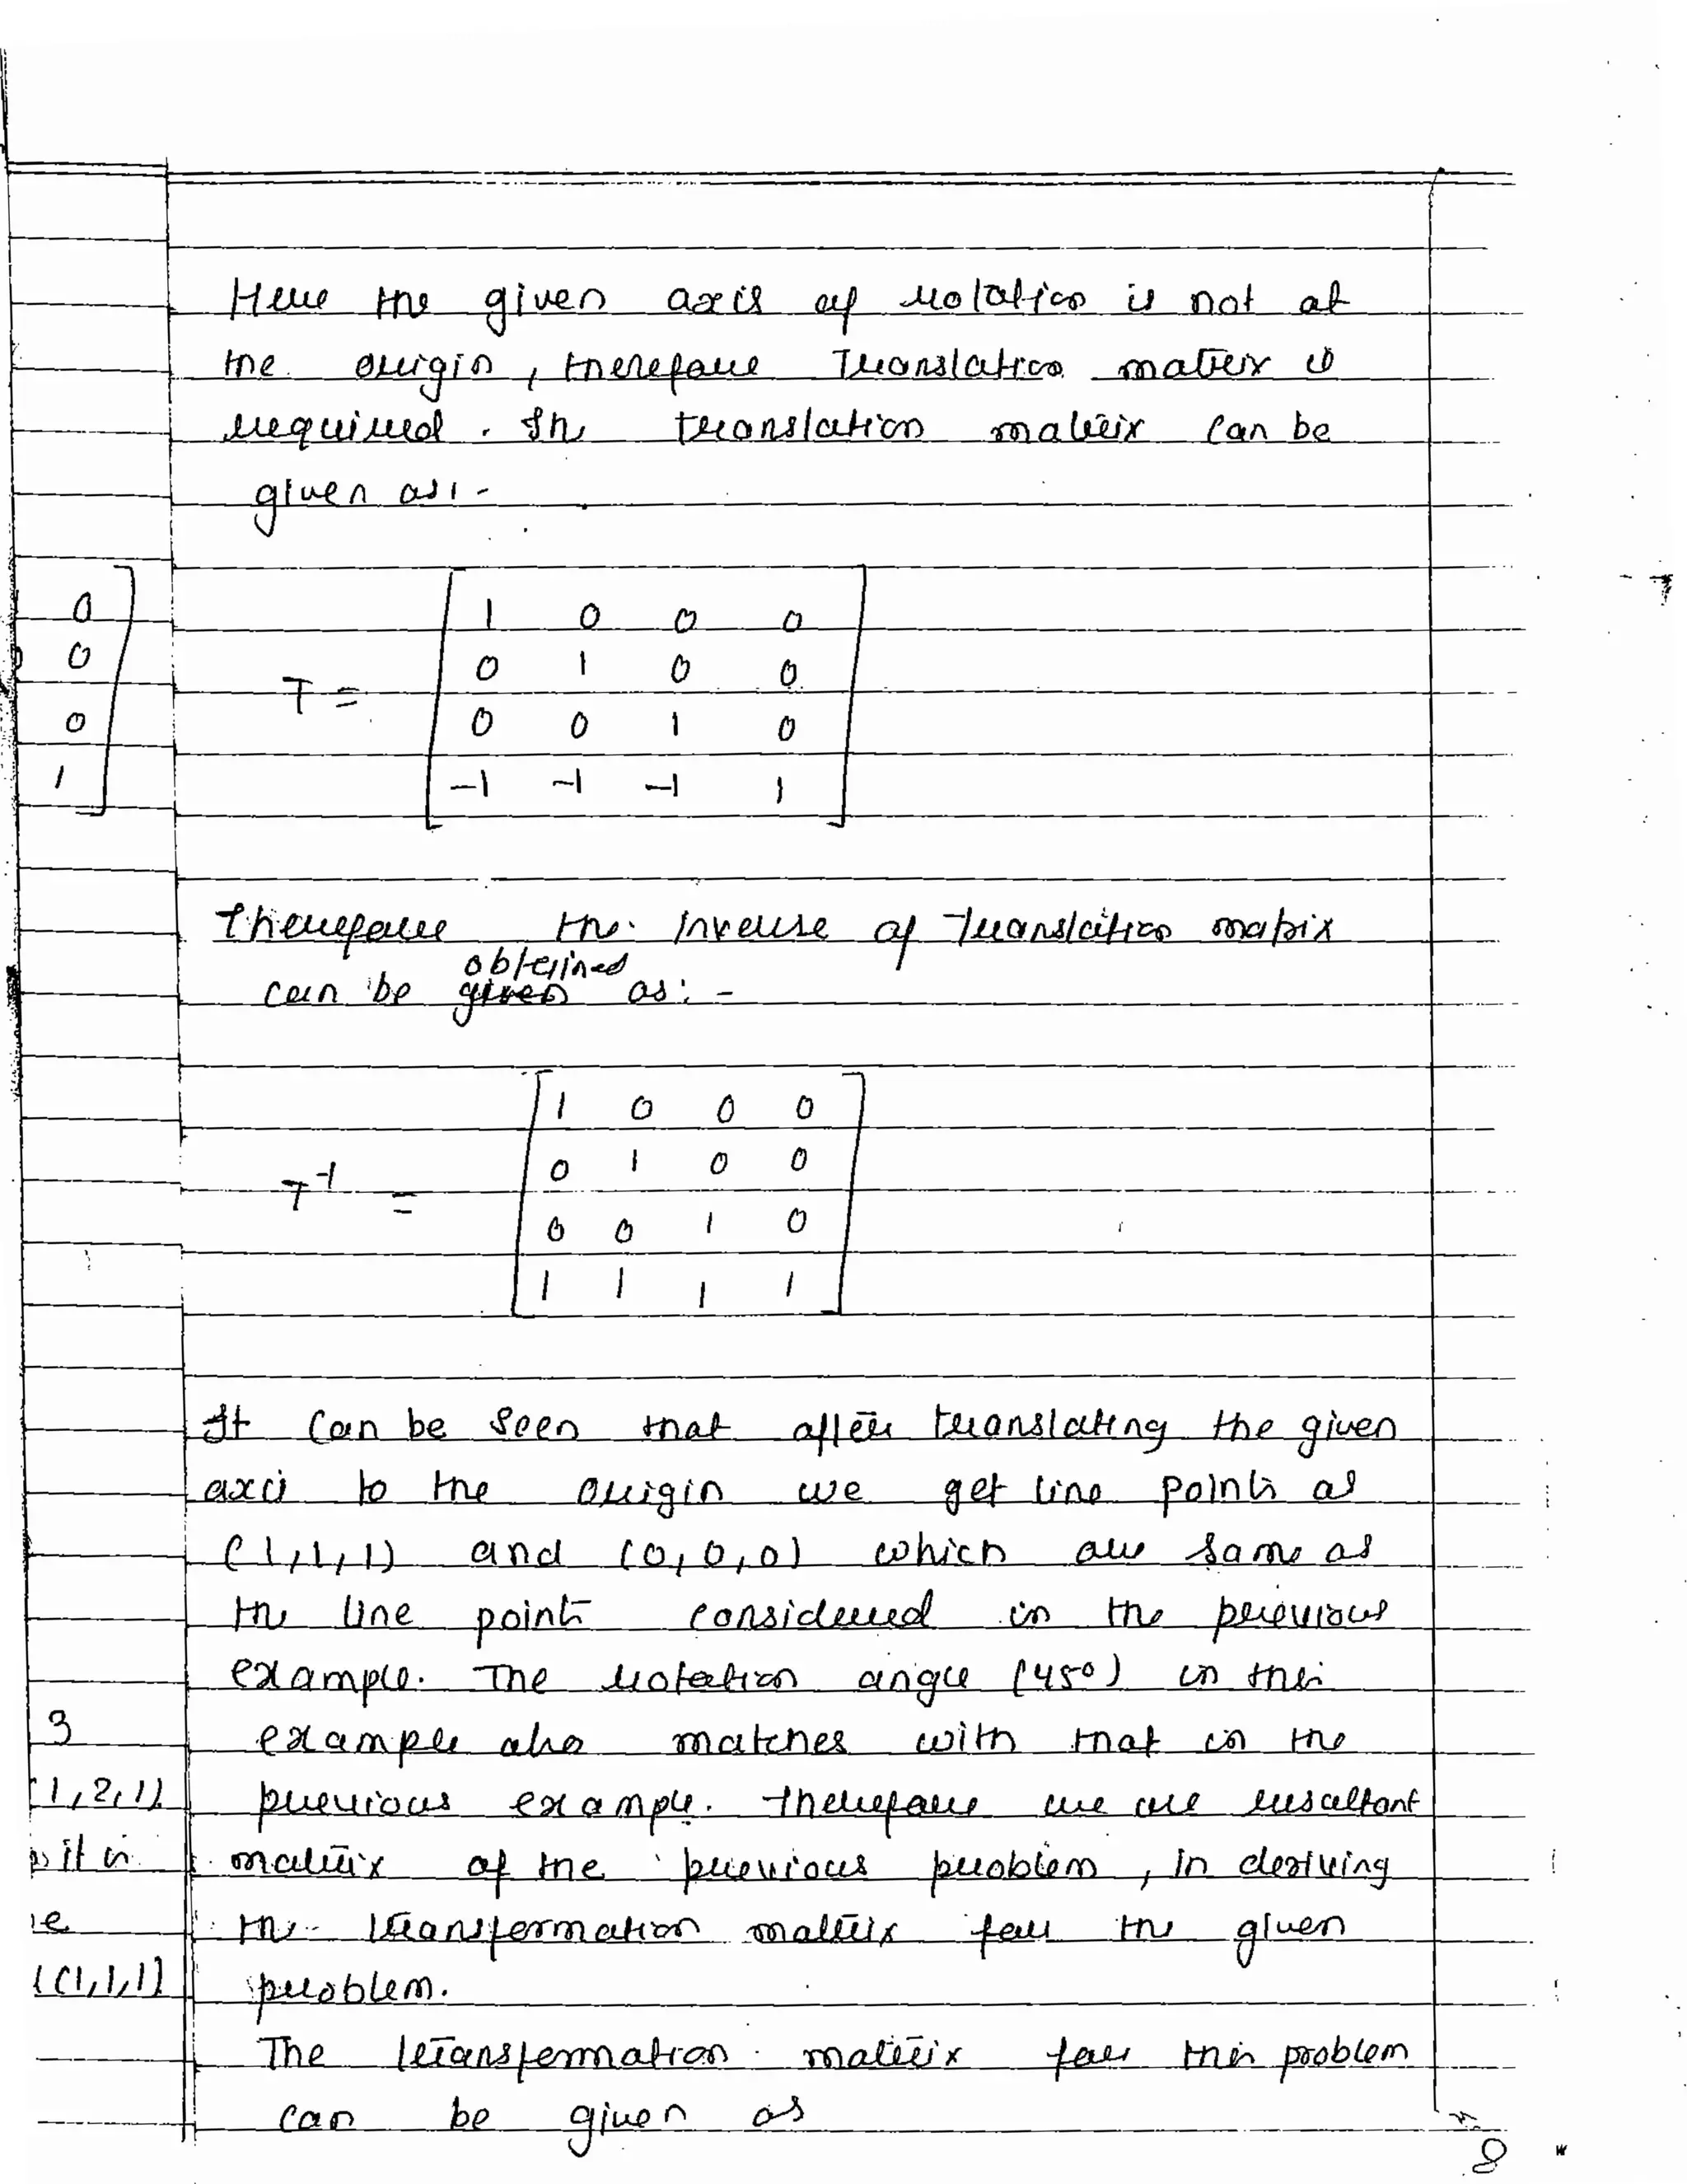 Here the given axis of rotation is not at
the origin, therefore Translation matrix is
required. The translation matrix can be
given as:-
0
0
0
1
T =
1 0 0 0
0 1 0 0
0 0 1 0
-1 -1 -1 1
Therefore the Inverse of Translation matrix
obtained
can be given as:-
T-1 =
1 0 0 0
0 1 0 0
0 0 1 0
1 1 1 1
It can be seen that after translating the given
axis to the origin we get line points as
(1,1,1) and (0,0,0) which are same as
the line points considered in the previous
example. The rotation angle (45°) in this
3
example also matches with that in the
1,2,1)
previous example. Therefore we are resultant
it is
matrix of the previous problem, in deriving
the transformation matrix for the given
(1,1,1)
problem.
The transformation matrix for this problem
can be given as
8